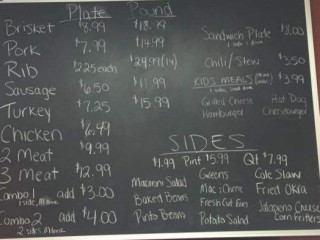 Plate Pound
Brisket $8.99 $18.99
Pork $7.99 $14.99
Rib $2.25 each $24.99
Sausage $6.50 $11.99
Turkey $7.25 $15.99
Chicken $6.49
2 Meat $9.99
3 Meat $12.99
Combo 1 add $3.00
1 side,
Combo 2 add $4.00
2 sides,
Sandwich Plate $8.00
Chili/Stew $3.50
KIDS MEALS $3.99
Grilled Cheese Hot Dog
Hamburger Cheeseburger
SIDES
$1.99 Pint $5.99 Qt $7.99
Macaroni Salad Greens Cole Slaw
Baked Beans Mac & Cheese Fried Okra
Pinto Beans Fresh Cut Fries Jalapeno Cheese
Potato Salad Corn Fritters